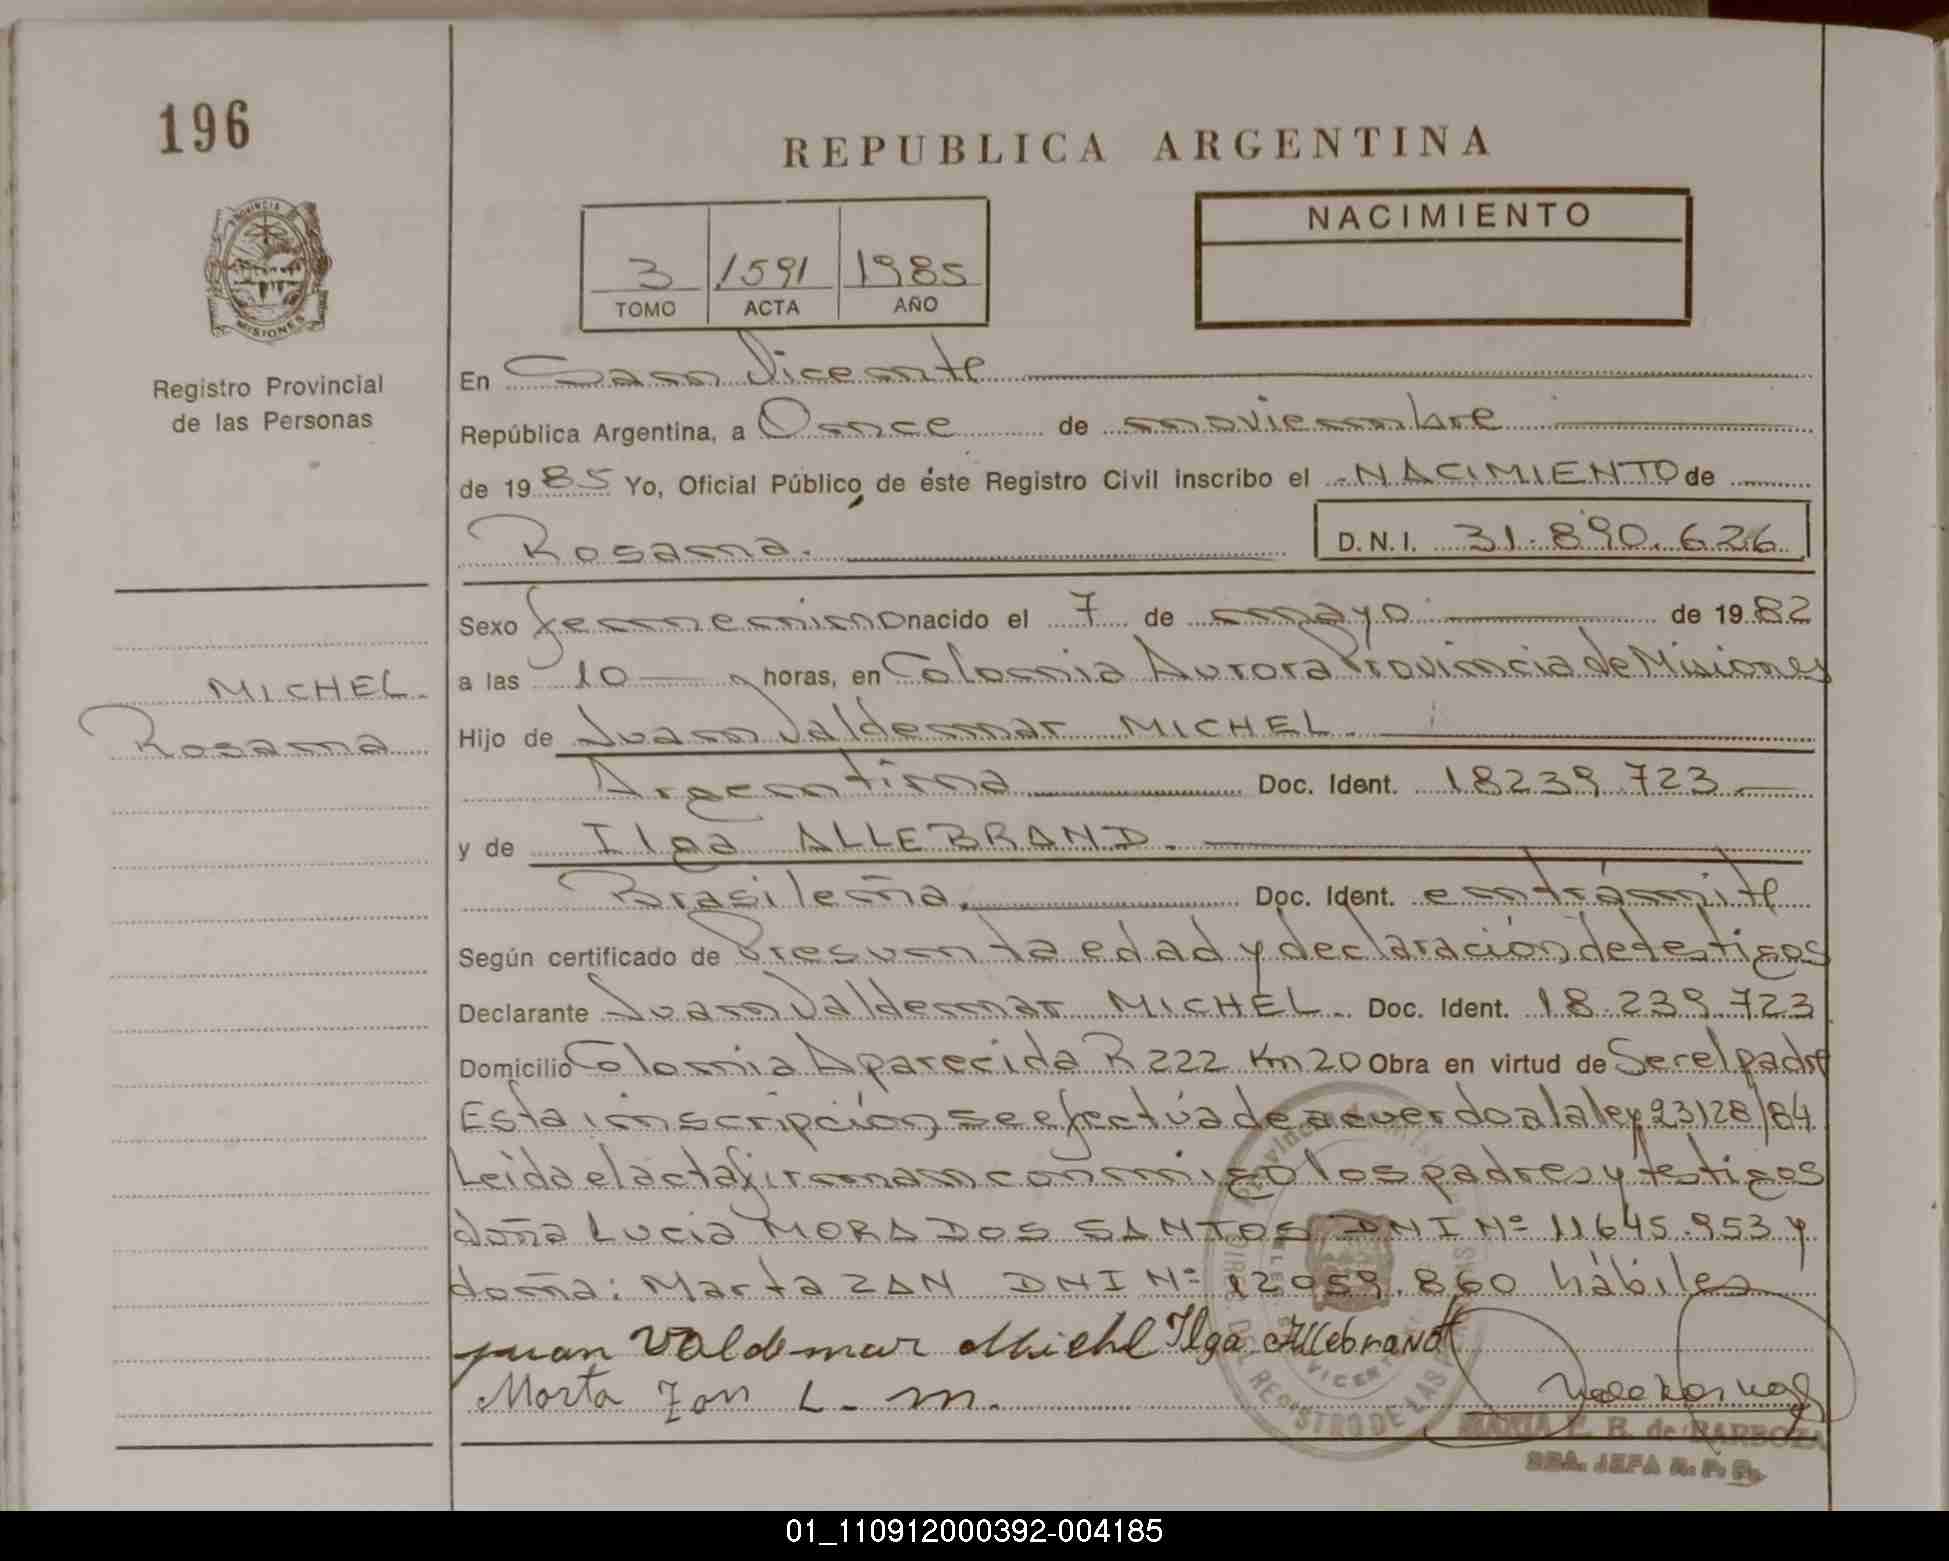 196
REPUBLICA ARGENTINA
PROVINCIA DE
MISIONES
Registro Provincial
de las Personas
3 1591 1985
TOMO ACTA AÑO
NACIMIENTO
En San Vicente
República Argentina, a Once de noviembre
de 1985 Yo, Oficial Público, de éste Registro Civil inscribo el NACIMIENTO de
Rosana. D.N.I. 31.890.626
MICHEL.
Rosana
Sexo femenino nacido el 7 de mayo de 1982
a las 10 horas, en Colonia Aurora Provincia de Misiones
Hijo de Juan Valdemar MICHEL.
Argentina Doc. Ident. 18239.723
y de Ilga ALLEBRAND.
Brasileña. Doc. Ident. en trámite
Según certificado de Presunta edad y declaración de testigos
Declarante Juan Valdemar MICHEL. Doc. Ident. 18.239.723
Domicilio Colonia Aparecida R 222 Km 20 Obra en virtud de Ser el padre
Esta inscripción se efectúa de acuerdo a la ley 23128/84
Leída el acta firman conmigo los padres y testigos
doña Lucia MORA DOS SANTOS DNI Nº 11645.953 y
doña: Marta ZAN DNI Nº 12059.860 hábiles
Juan Valdemar Michel Ilga Allebrand
Marta Zan L. m.
MARIA E. B. de BARBOZA
SRA. JEFA R. P. P.
01_110912000392-004185